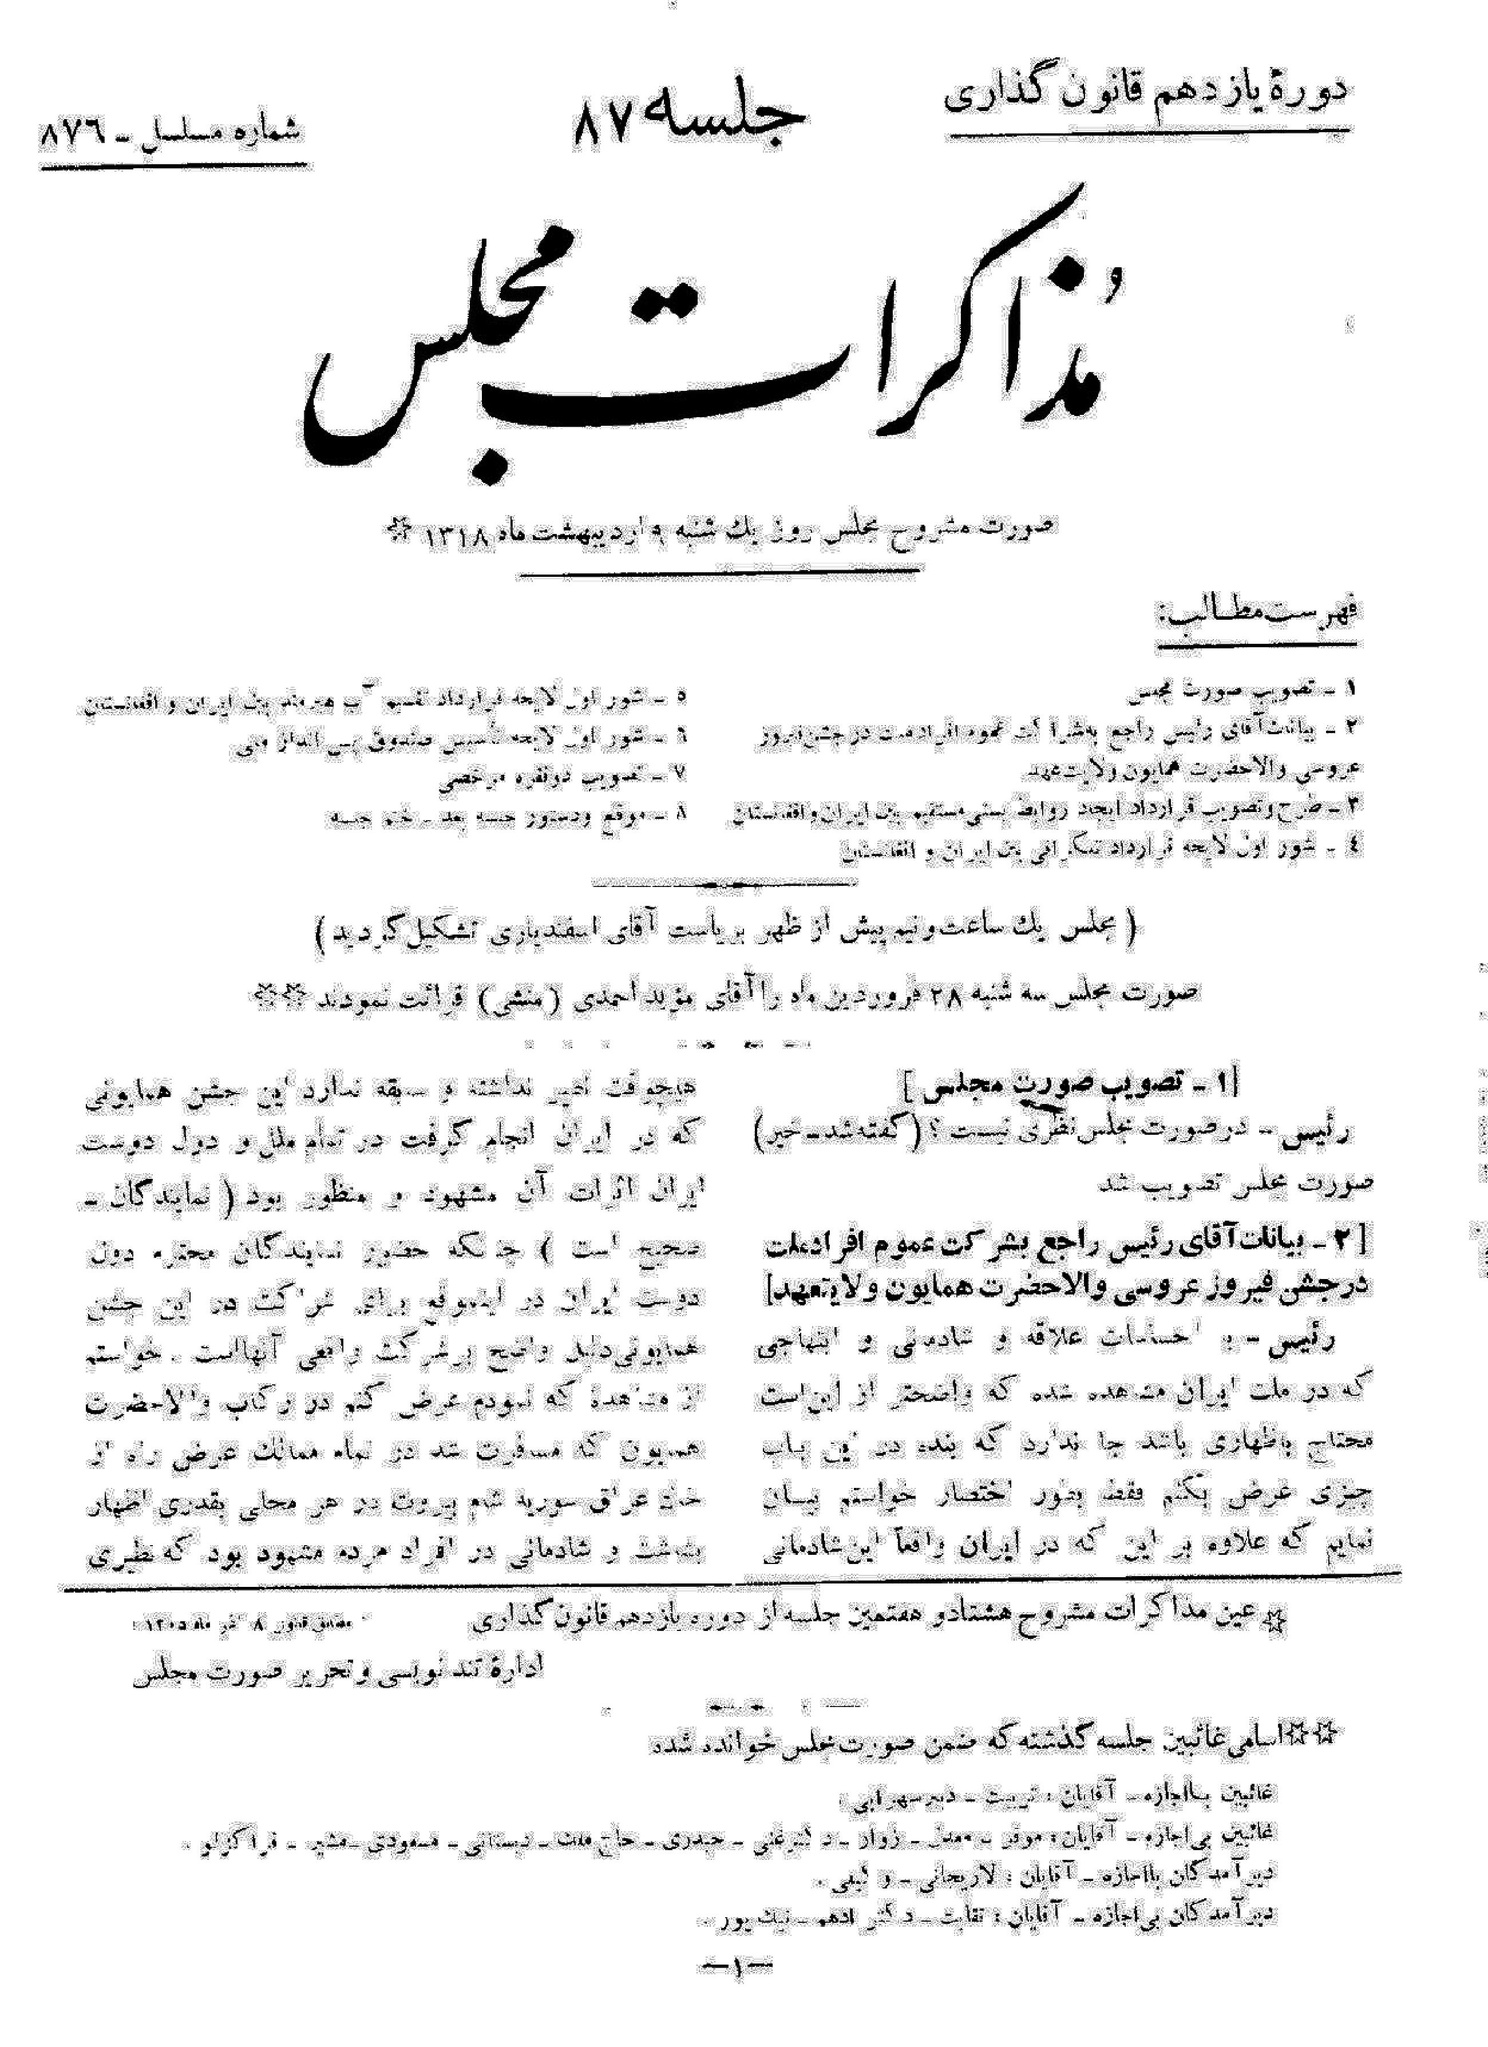 دورهٔ یازدهم قانون گذاری
جلسه ۸۷
شماره مسلسل ـ ۸۷۶
مُذاکرات مجلس
صورت مشروح مجلس روز یك شنبه ۹ اردیبهشت ماه ۱۳۱۸ ☆
فهرست مطالب:
۱ ـ تصویب صورت مجلس
۲ ـ بیانات آقای رئیس راجع بشرکت عموم افراد ملت در جشن فیروز
عروسی والاحضرت همایون ولایتعهد
۳ ـ طرح و تصویب قرارداد ایجاد روابط پستی مستقیم بین ایران و افغانستان
٤ ـ شور اول لایحه قرارداد تلگرافی بین ایران و افغانستان
۵ ـ شور اول لایحه قرارداد تقسیم آب هیرمند بین ایران و افغانستان
۶ ـ شور اول لایحه تأسیس صندوق پس انداز ملی
۷ ـ تصویب دوفقره مرخصی
۸ ـ موقع و دستور جلسه بعد ـ ختم جلسه
( مجلس یك ساعت و نیم پیش از ظهر بریاست آقای اسفندیاری تشکیل گردید )
صورت مجلس سه شنبه ۲۸ فروردین ماه را آقای مؤید احمدی (منشی) قرائت نمودند ☆☆
[۱ ـ تصویب صورت مجلس ]
رئیس ـ در صورت مجلس نظری نیست ؟ ( گفته شد ـ خیر)
صورت مجلس تصویب شد
[ ۲ ـ بیانات آقای رئیس راجع بشرکت عموم افراد ملت
در جشن فیروز عروسی والاحضرت همایون ولایتعهد]
رئیس ـ با احساسات علاقه و شادمانی و ابتهاجی
که در ملت ایران مشاهده شده که واضحتر از این است
محتاج باظهاری باشد جا ندارد که بنده در این باب
چیزی عرض بکنم فقط بطور اختصار خواستم بیان
نمایم که علاوه بر این که در ایران واقعاً این شادمانی
هیچوقت نظیر نداشته و سابقه ندارد این جشن همایونی
که در ایران انجام گرفت در تمام ملل و دول دوست
ایران اثرات آن مشهود و منظور بود ( نمایندگان ـ
صحیح است ) چنانکه حضور نمایندگان محترم دول
دوست ایران در اینموقع برای شرکت در این جشن
همایونی دلیل واضح بر شرکت واقعی آنها است . خواستم
از مشاهدهٔ که نمودم عرض کنم در رکاب والاحضرت
همایون که مسافرت شد در تمام ممالك عرض راه از
خاك عراق سوریه شام بیروت در هر محلی بقدری اظهار
بشاشت و شادمانی در افراد مردم مشهود بود که نظیری
☆ عین مذاکرات مشروح هشتاد و هفتمین جلسه از دوره یازدهم قانون گذاری
مطابق قانون ۸ آذر ماه ۱۳۰۵
ادارهٔ تند نویسی و تحریر صورت مجلس
☆☆ اسامی غائبین جلسه گذشته که ضمن صورت مجلس خوانده شده
غائبین با اجازه ـ آقایان : تربیت ـ دبیر سهرابی .
غائبین بی اجازه ـ آقایان : موقر ـ معدل ـ زوار ـ دکتر غنی ـ حیدری ـ حاج ملك ـ دبستانی ـ مسعودی ـ مشیر ـ قراگزلو .
دیر آمدگان با اجازه ـ آقایان : لاریجانی ـ وکیلی .
دیر آمدگان بی اجازه ـ آقایان : نقابت ـ دکتر ادهم ـ نیك پور .
ـ۱ـ